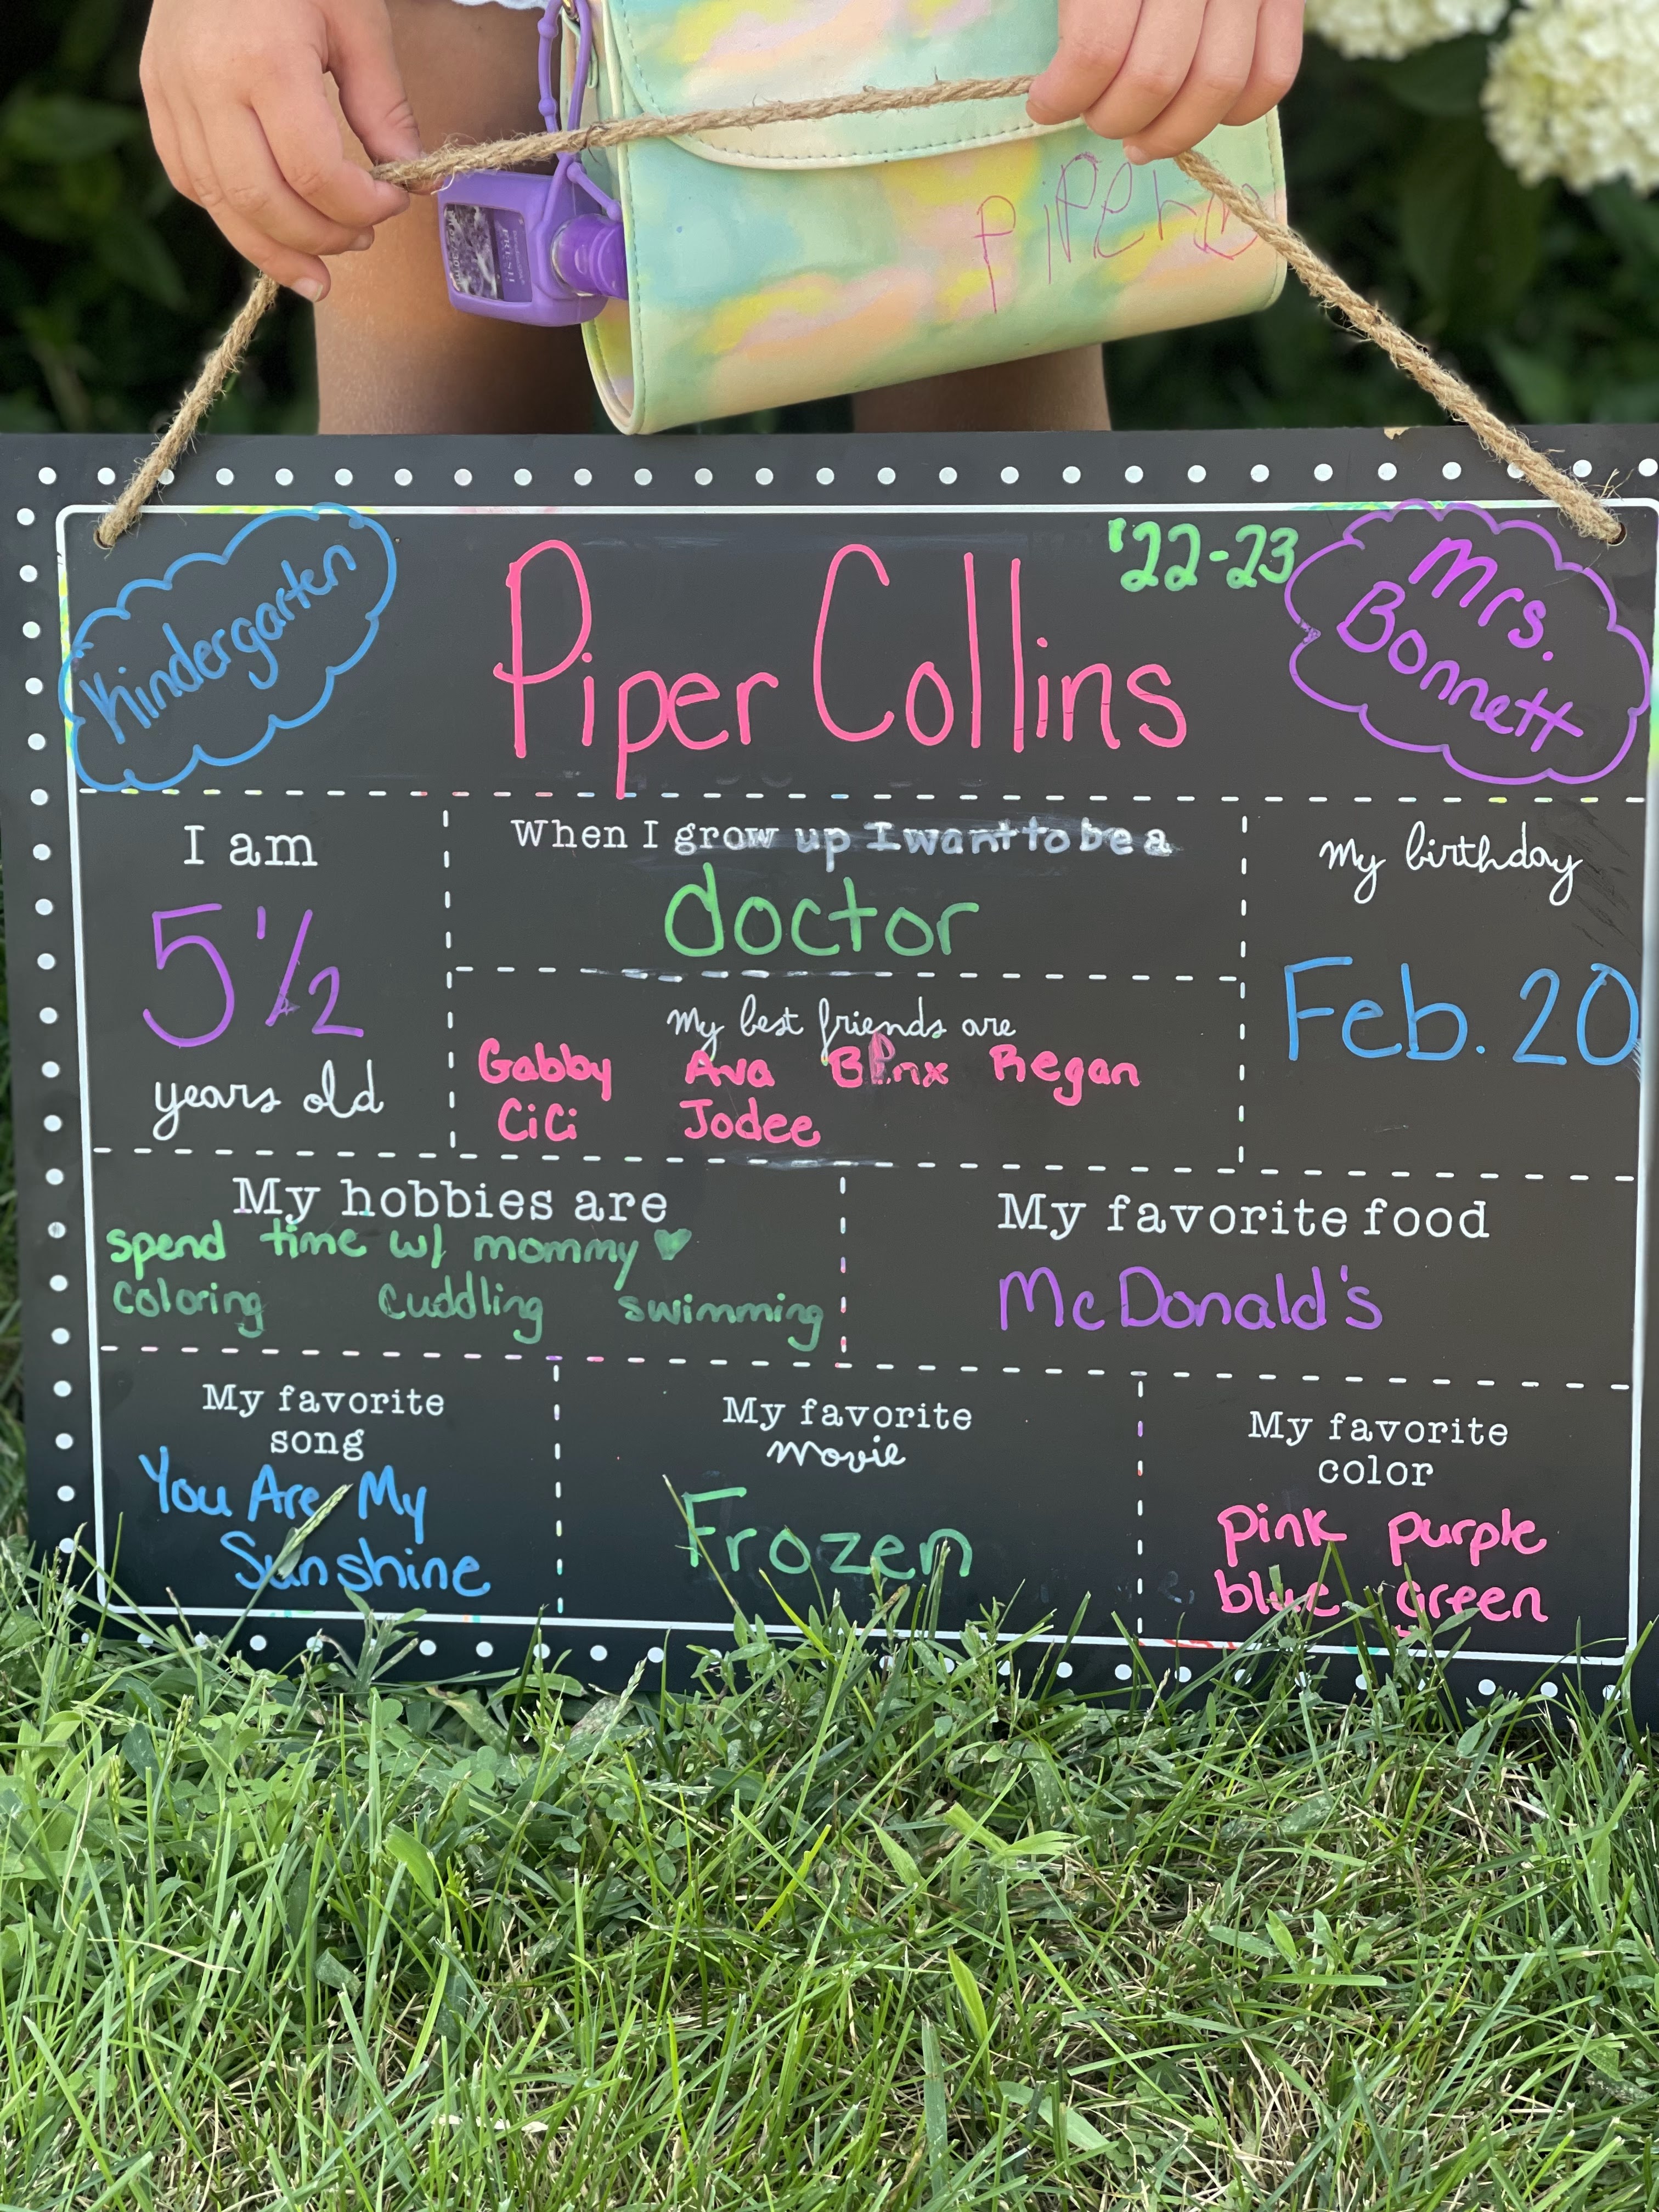 Piper
Kindergarten
Piper Collins
'22-23
Mrs.
Bonnett
I am
5 1/2
years old
When I grow up I want to be a
doctor
My best friends are
Gabby Ava Regan
CiCi Jodee
My birthday
Feb. 20
My hobbies are
spend time w/ mommy ♥
coloring cuddling swimming
My favorite food
McDonald's
My favorite
song
You Are My
Sunshine
My favorite
movie
Frozen
My favorite
color
pink purple
blue green